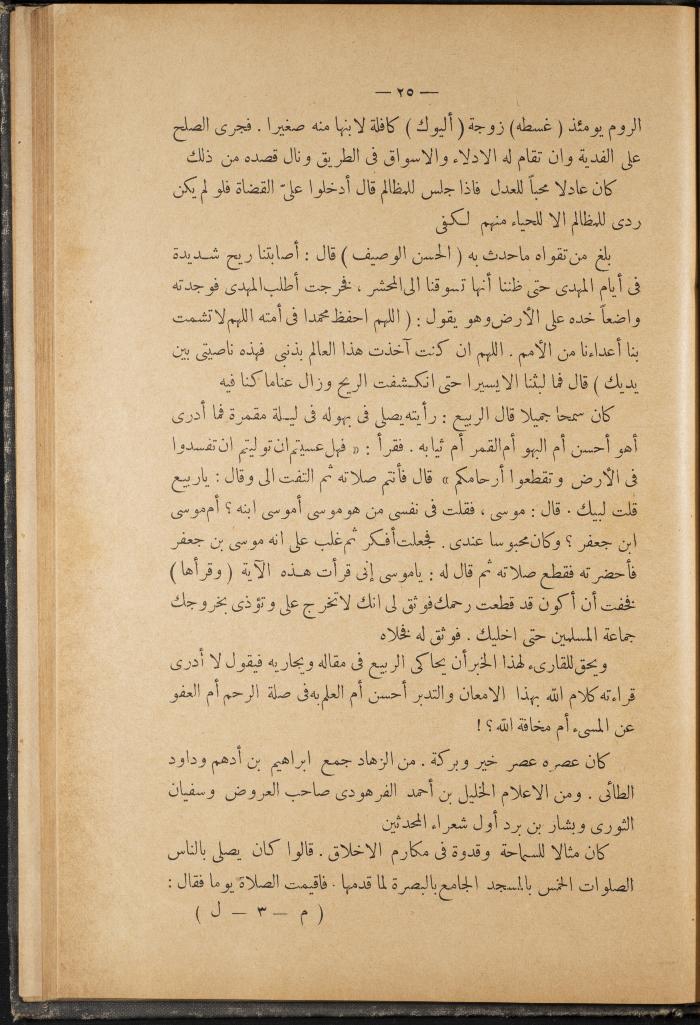 — ٢٥ —
الروم يومئذ (غسطه) زوجة (أليوك) كافلة لابنها منه صغيرا . فجرى الصلح
على الفدية وان تقام له الادلاء والاسواق فى الطريق ونال قصده من ذلك
كان عادلا محباً للعدل فاذا جلس للمظالم قال أدخلوا علىّ القضاة فلو لم يكن
ردى للمظالم الا للحياء منهم لكفى
بلغ من تقواه ماحدث به (الحسن الوصيف) قال : أصابتنا ريح شديدة
فى أيام المهدى حتى ظننا أنها تسوقنا الى المحشر ، فخرجت أطلب المهدى فوجدته
واضعاً خده على الأرض وهو يقول : (اللهم احفظ محمدا فى أمته اللهم لا تشمت
بنا أعداءنا من الأمم . اللهم ان كنت آخذت هذا العالم بذنبى فهذه ناصيتى بين
يديك) قال فما لبثنا الا يسيرا حتى انكشفت الريح وزال عنا ما كنا فيه
كان سمحا جميلا قال الربيع : رأيته يصلى فى بهوله فى ليلة مقمرة فما أدرى
أهو أحسن أم البهو أم القمر أم ثيابه . فقرأ : « فهل عسيتم ان توليتم ان تفسدوا
فى الأرض وتقطعوا أرحامكم » قال فأتم صلاته ثم التفت الى وقال : ياربيع
قلت لبيك . قال : موسى ، فقلت فى نفسى من هو موسى أموسى ابنه ؟ أم موسى
ابن جعفر ؟ وكان محبوسا عندى . فجعلت أفكر ثم غلب على انه موسى بن جعفر
فأحضرته فقطع صلاته ثم قال له : ياموسى إنى قرأت هذه الآية (وقرأها)
فخفت أن أكون قد قطعت رحمك فوثق لى انك لا تخرج على وتؤذى بخروجك
جماعة المسلمين حتى اخليك . فوثق له فخلاه
ويحق للقارىء لهذا الخبر أن يحاكى الربيع فى مقاله ويجاريه فيقول لا أدرى
قراءته كلام الله بهذا الامعان والتدبر أحسن أم العلم به فى صلة الرحم أم العفو
عن المسىء أم مخافة الله ؟ !
كان عصره عصر خير وبركة . من الزهاد جمع ابراهيم بن أدهم وداود
الطائى . ومن الاعلام الخليل بن أحمد الفرهودى صاحب العروض وسفيان
الثورى وبشار بن برد أول شعراء المحدثين
كان مثالا للسماحة وقدوة فى مكارم الاخلاق . قالوا كان يصلى بالناس
الصلوات الخمس بالمسجد الجامع بالبصرة لما قدمها . فاقيمت الصلاة يوما فقال :
( م — ٣ — ل )